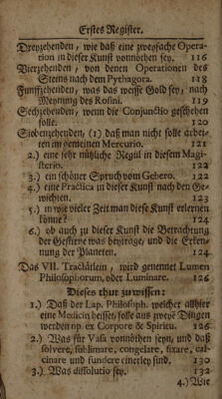 Erstes Register.
Dreyzehenden, wie daß eine zweyfache Opera-
tion in dieser Kunst vonnöthen sey. 116
Vierzehenden, von denen Operationen des
Steins nach dem Pythagora. 118
Funffzehenden, was das weisse Gold sey, nach
Meynung des Rosini. 119
Sechzehenden, wenn die Conjunctio geschehen
solle. 120
Siebenzehenden, (1) daß man nicht solle arbei-
ten im gemeinen Mercurio. 121
2.) eine sehr nützliche Regul in diesem Magi-
sterio. 122
3.) ein schöner Spruch vom Gebero. 122
4.) eine Practica in dieser Kunst nach den Ge-
wichten. 123
5.) in wie vieler Zeit man diese Kunst erlernen
könne? 124
6.) ob auch zu dieser Kunst die Betrachtung
der Gestirne was beytrage, und die Erken-
nung der Planeten. 124
Das VII. Tractätlein, wird genennet Lumen
Philosophorum, oder Luminare. 126
Dieses thut zu wissen:
1.) Daß der Lap. Philosoph. welcher allhier
eine Medicin heisset, solle aus zweyen Dingen
werden np. ex Corpore & Spiritu. 126
2.) Was für Vasa vonnöthen seyn, und daß
solvere, sublimare, congelare, fixare, cal-
cinare und fundere einerley sind. 130
3.) Was dissolutio sey. 132
4.) Wie